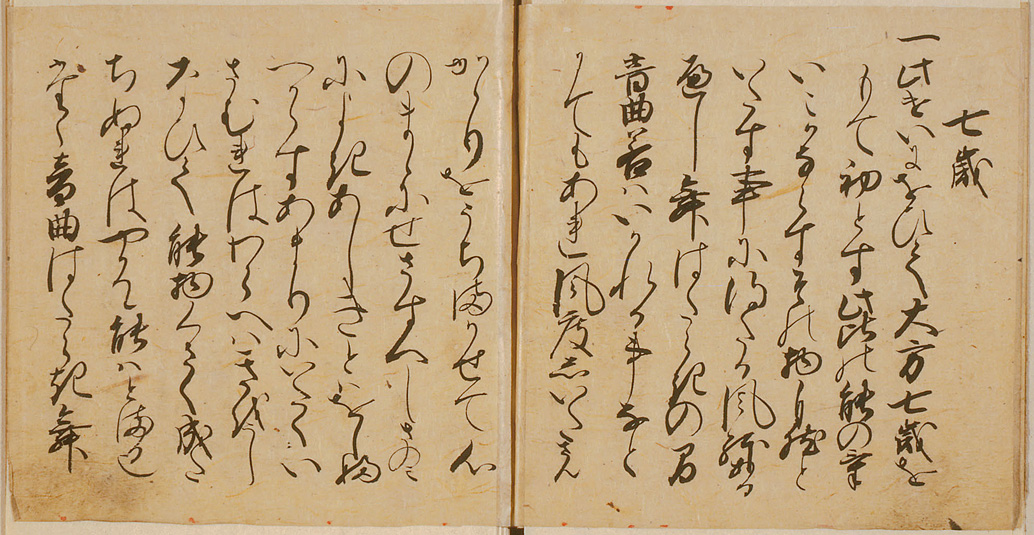 七歳
一此けいにをひて大方七歳を
もて初とす此比の能のけ
いこかならすその物自然と
いたす事に得たる風躰ある
へし舞はたらきの間
音曲若はいかれる事なと
にてもあれ風度しいたさん
かゝりをうちまかせて心
のまゝにせさすへしさのみ
によきあしきとはをしふ
へからすあまりにいたくい
さむれはわらへはきをうし
なひて能物くさく成た
ちぬれはやかて能はとまる也
たゝ音曲はたらき舞